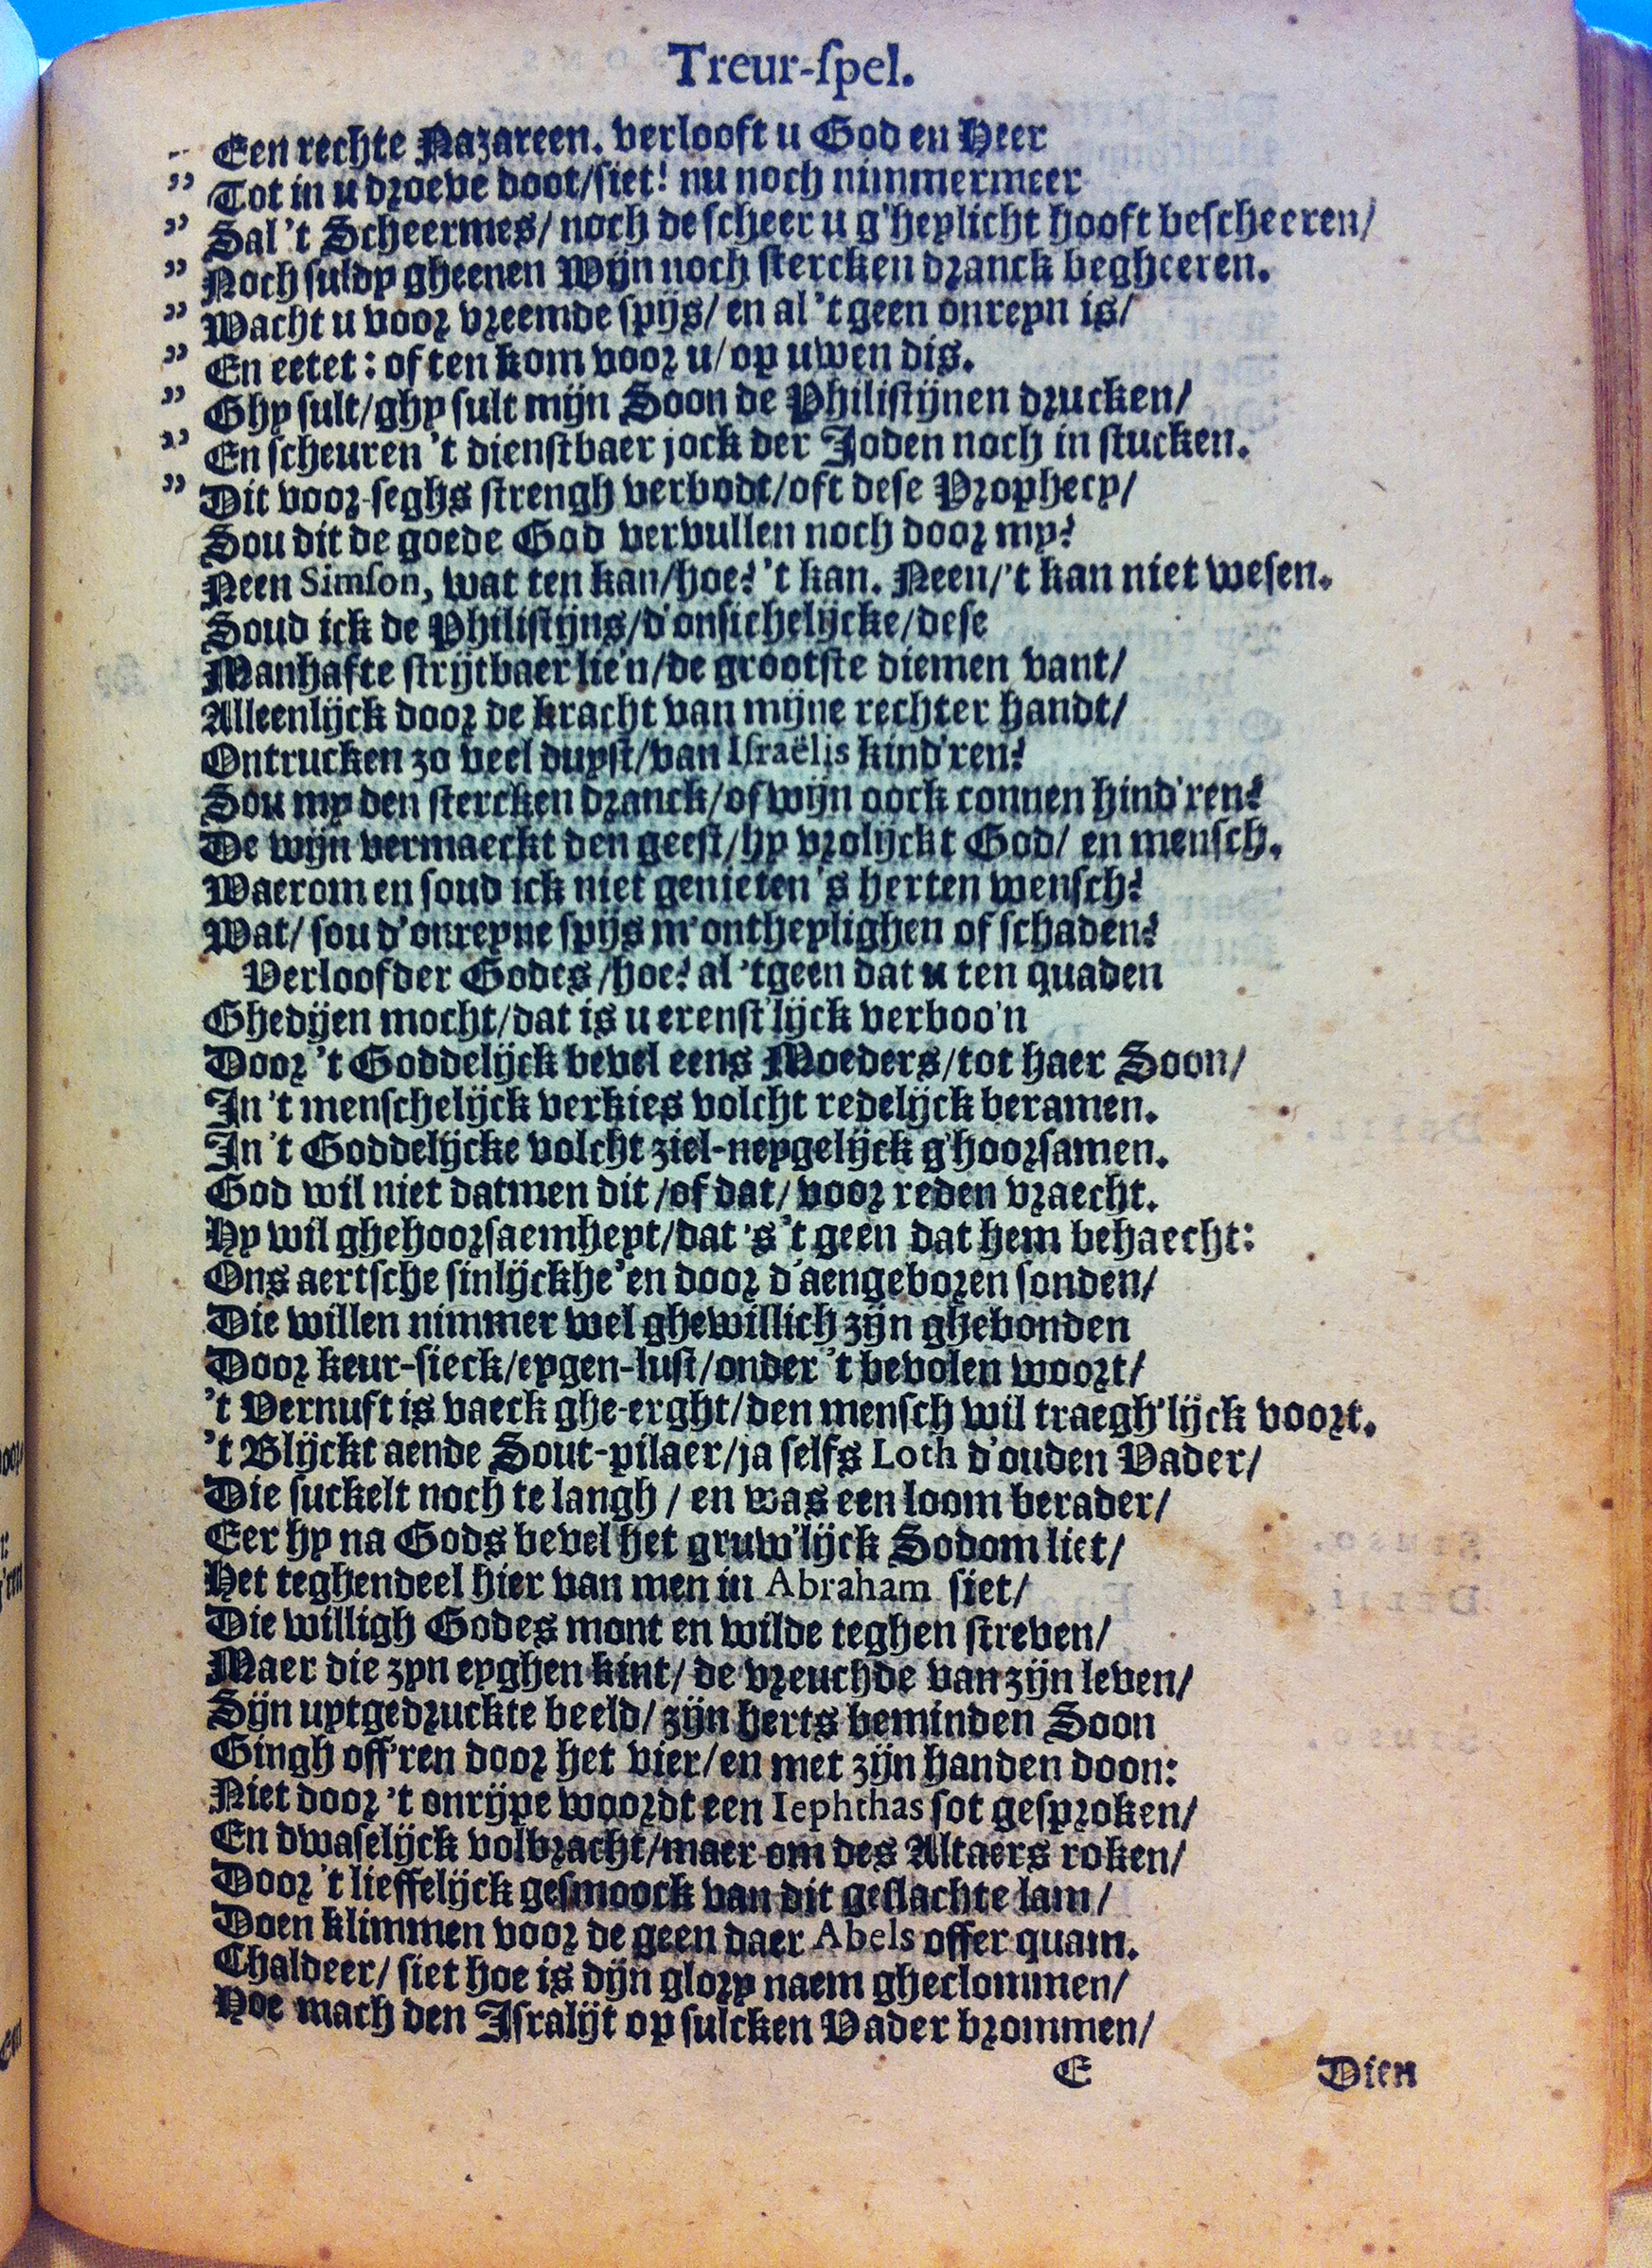 Treur-ſpel.
„ Een rechte Nazareen. verlooft u God en Heer
” Tot in u droeve doot/ſiet! nu noch nimmermeer
” Sal 't Scheermes/ noch de ſcheer u g'heylicht hooft beſcheeren/
” Noch ſuldy gheenen Wijn noch ſtercken dranck begheeren.
” Wacht u voor vreemde ſpijs/ en al 't geen onreyn is/
” En eetet: of ten kom voor u/ op uwen dis.
” Ghy ſult/ghy ſult mijn Soon de Philiſtijnen drucken/
” En ſcheuren 't dienſtbaer jock der Joden noch in ſtucken.
” Dit voor-ſeghs ſtrengh verbodt/oft deſe Prophecy/
Sou dit de goede God vervullen noch door my?
Neen Simſon, wat ten kan/hoe? 't kan. Neen/'t kan niet weſen.
Soud ick de Philiſtijns/d'onſichelijcke/deſe
Manhafte ſtrijtbaer lie'n/de grootſte diemen vant/
Alleenlijck door de kracht van mijne rechter handt/
Ontrucken zo veel duyſt/van Iſraëlis kind'ren?
Sou my den ſtercken dranck/of wijn oock connen hind'ren?
De wijn vermaeckt den geeſt/hy vrolijckt God/ en menſch.
Waerom en ſoud ick niet genieten 's herten wenſch?
Wat/ ſou d'onreyne ſpijs m'ontheylighen of ſchaden?
Verloofder Godes/hoe? al 'tgeen dat u ten quaden
Ghedijen mocht/dat is u erenſt'lijck verboo'n
Door 't Goddelijck bevel eens Moeders/tot haer Soon/
In 't menſchelijck verkies volcht redelijck beramen.
In 't Goddelijcke volcht ziel-neygelijck g'hoorſamen.
God wil niet datmen dit/of dat/ voor reden vraecht.
Hy wil ghehoorſaemheyt/dat 's 't geen dat hem behaecht:
Ons aertſche ſinlijckhe'en door d'aengeboren ſonden/
Die willen nimmer wel ghewillich zijn ghebonden
Door keur-ſieck/eygen-luſt/onder 't bevolen woort/
't Vernuft is vaeck ghe-erght/den menſch wil traegh'lijck voort.
't Blijckt aende Sout-pilaer/ja ſelfs Loth d'ouden Vader/
Die ſuckelt noch te langh/ en was een loom berader/
Eer hy na Gods bevel het gruw'lijck Sodom liet/
Het teghendeel hier van men in Abraham ſiet/
Die willigh Godes mont en wilde teghen ſtreven/
Maer die zyn eyghen kint/ de vreuchde van zijn leven/
Sijn uytgedruckte beeld/ zijn herts beminden Soon
Gingh off'ren door het vier/en met zijn handen doon:
Niet door 't onrijpe woordt een Iephthas ſot geſproken/
En dwaſelijck volbracht/maer om des Altaers roken/
Door 't lieffelijck geſmoock van dit geſlachte lam/
Doen klimmen voor de geen daer Abels offer quam.
Chaldeer/ ſiet hoe is dijn glory naem gheclommen/
Hoe mach den Iſralijt op ſulcken Vader brommen/
E Dien